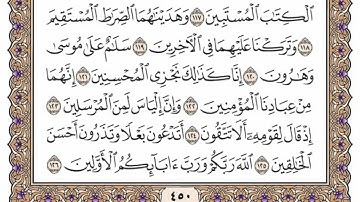 ٱلْكِتَٰبَ ٱلْمُسْتَبِينَ ١١٧ وَهَدَيْنَٰهُمَا ٱلصِّرَٰطَ ٱلْمُسْتَقِيمَ
١١٨ وَتَرَكْنَا عَلَيْهِمَا فِى ٱلْءَاخِرِينَ ١١٩ سَلَٰمٌ عَلَىٰ مُوسَىٰ
وَهَٰرُونَ ١٢٠ إِنَّا كَذَٰلِكَ نَجْزِى ٱلْمُحْسِنِينَ ١٢١ إِنَّهُمَا
مِنْ عِبَادِنَا ٱلْمُؤْمِنِينَ ١٢٢ وَإِنَّ إِلْيَاسَ لَمِنَ ٱلْمُرْسَلِينَ ١٢٣
إِذْ قَالَ لِقَوْمِهِۦٓ أَلَا تَتَّقُونَ ١٢٤ أَتَدْعُونَ بَعْلًا وَتَذَرُونَ أَحْسَنَ
ٱلْخَٰلِقِينَ ١٢٥ ٱللَّهَ رَبَّكُمْ وَرَبَّ ءَابَآئِكُمُ ٱلْأَوَّلِينَ ١٢٦
٤٥٠